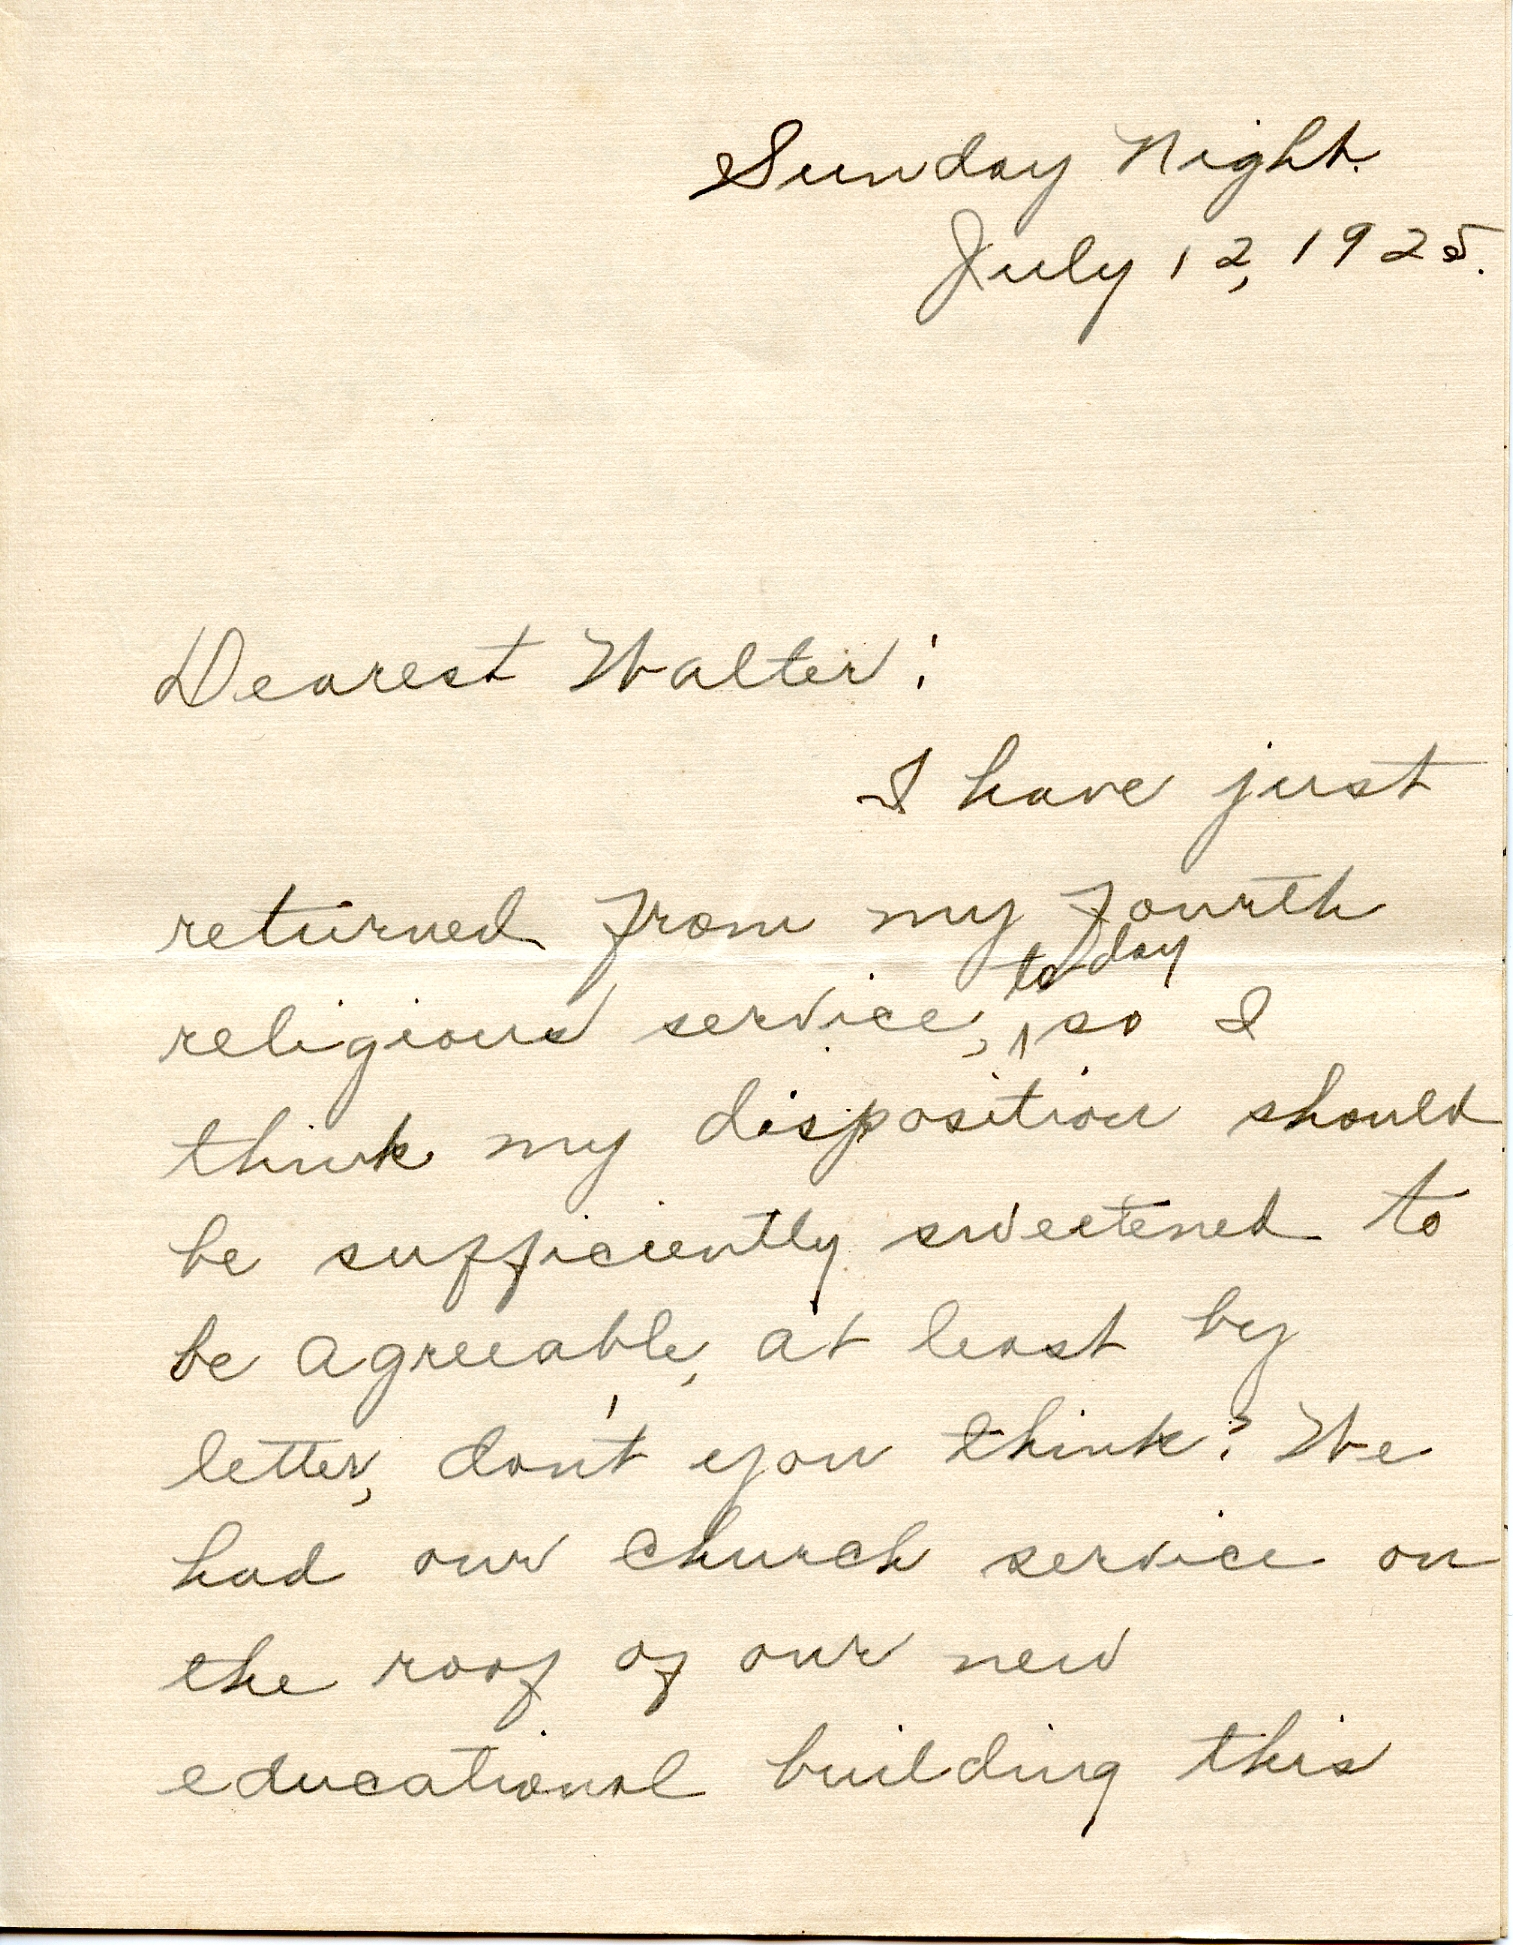 Sunday Night.
July 12, 1925.
Dearest Walter:
I have just
returned from my fourth
today
religious service, ^ so I
think my disposition should
be sufficiently sweetened to
be agreeable, at least by
letter, don't you think? We
had our church service on
the roof of our new
educational building this